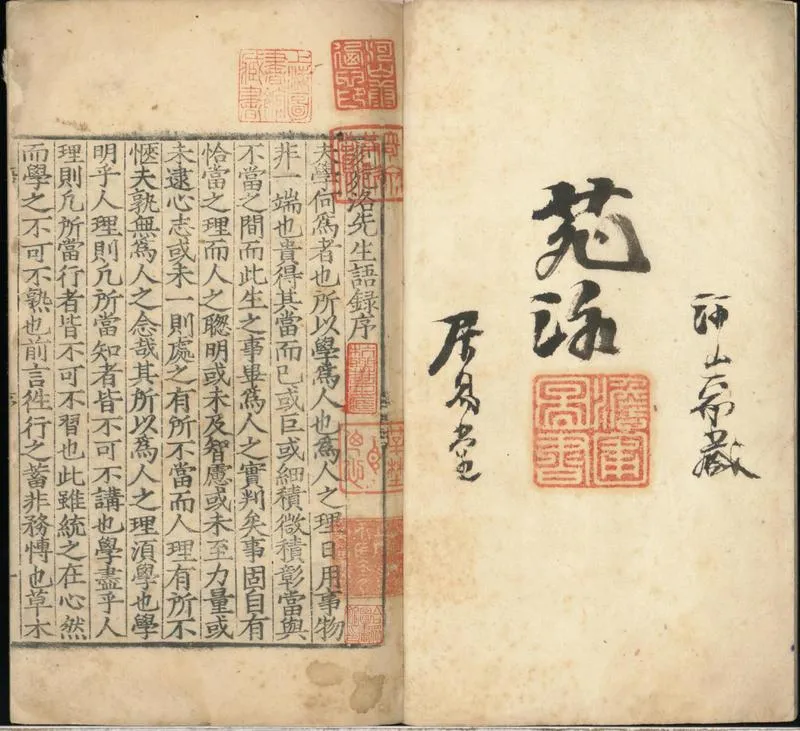 苑洛
居易堂
上海圖書館藏書
苑洛先生語錄序
夫學何爲者也所以學爲人也爲人之理日用事物
非一端也貴得其當而已或巨或細積微積彰當與
不當之間而此生之事畢爲人之實判矣事固自有
恰當之理而人之聰明或未及智慮或未至力量或
未逮心志或未一則處之有所不當而人理有所不
愜夫孰無爲人之念哉其所以爲人之理湏學也學
明乎人理則凡所當知者皆不可不講也學盡乎人
理則凡所當行者皆不可不習也此雖統之在心然
而學之不可不熟也前言徃行之蓄非務愽也草木